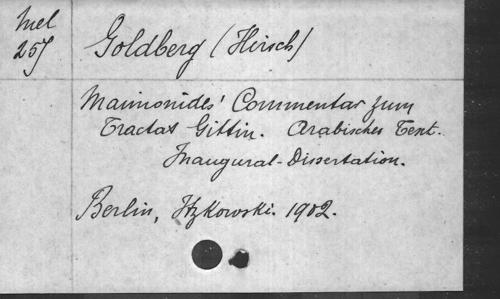 Mel
257
Goldberg (Hirsch)
Maimonides' Commentar zum
Tractat Gittin. Arabischer Text.
Inaugural-Dissertation.
Berlin, Itzkowski. 1902.